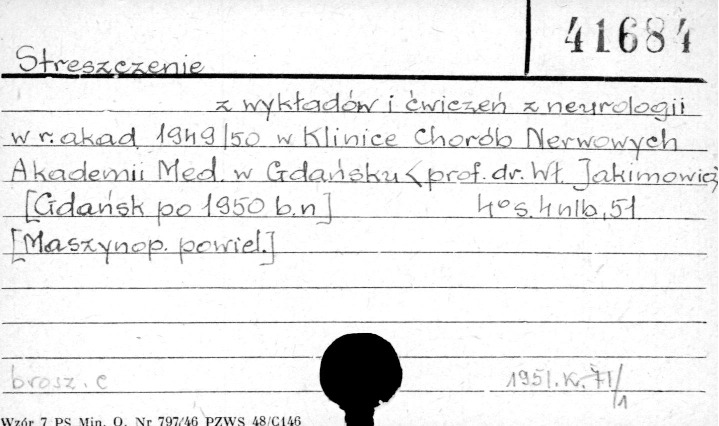 41684
Streszczenie
z wykładów i ćwiczeń z neurologii
w r. akad. 1949/50 w Klinice Chorób Nerwowych
Akademii Med. w Gdańsku < prof. dr. Wł. Jakimowicz
[Gdańsk po 1950 b.n] 4° s. 4 nlb, 51
[Maszynop. powiel.]
brosz. c 1951.K. 71/1
Wzór 7 PS Min. O. Nr 797/46 PZWS 48/C146